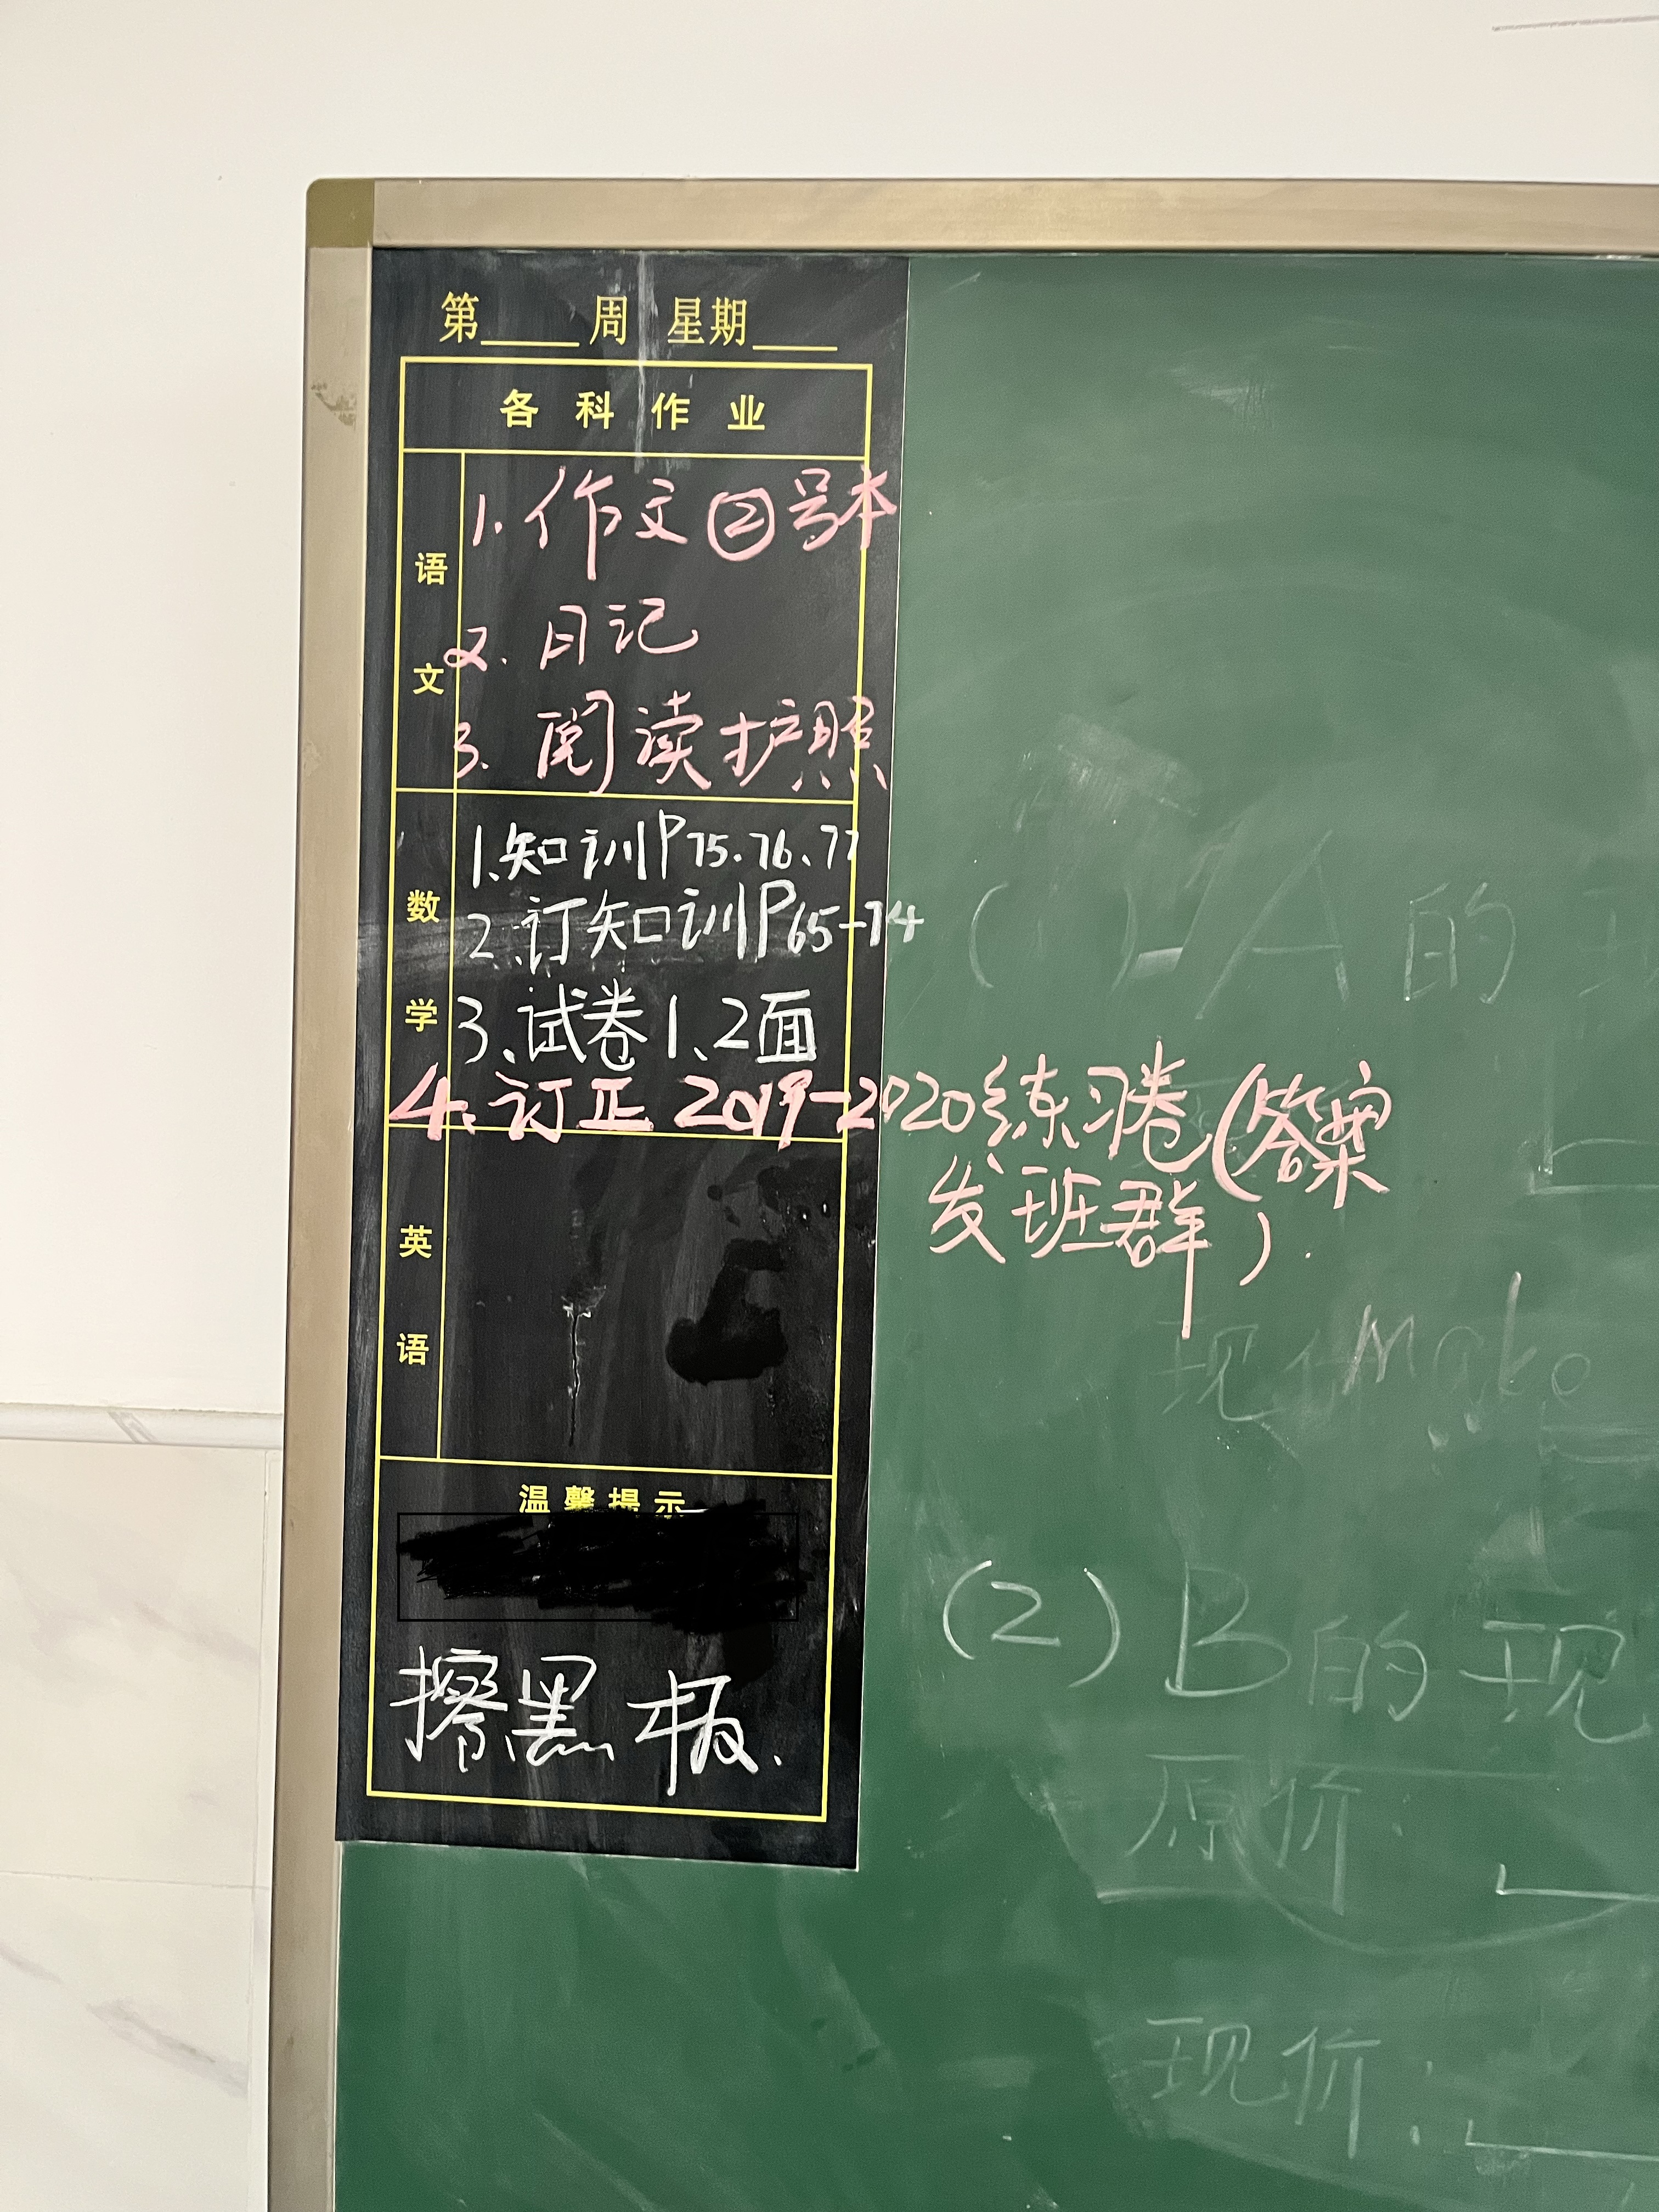 第____周 星期____
各科作业
语文
1. 作文②号本
2. 日记
3. 阅读护照
数学
1、知训P75、76、77
2、订知训P65-74
3、试卷1、2面
4、订正2019-2020练习卷(答案
发班群).
英语
温馨提示
擦黑板.
A的现
现价
make
(2)B的现
原价:
现价: